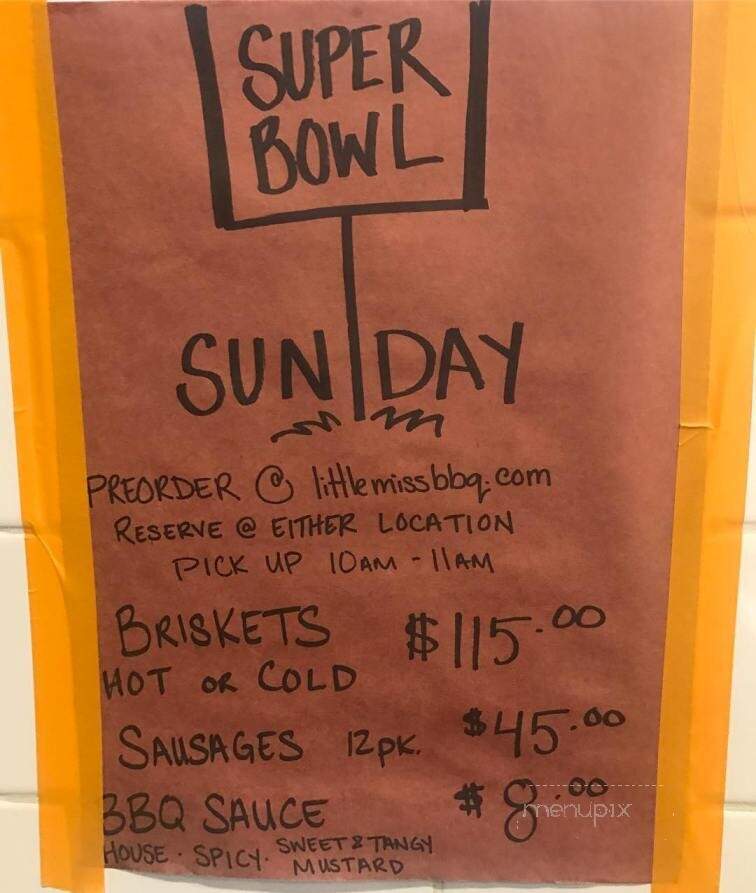 SUPER
BOWL
SUN DAY
PREORDER @ littlemissbbq.com
RESERVE @ EITHER LOCATION
PICK UP 10AM - 11AM
BRISKETS $115.00
HOT OR COLD
SAUSAGES 12pk. $45.00
BBQ SAUCE $8.00
HOUSE · SPICY · SWEET & TANGY
MUSTARD
menupix